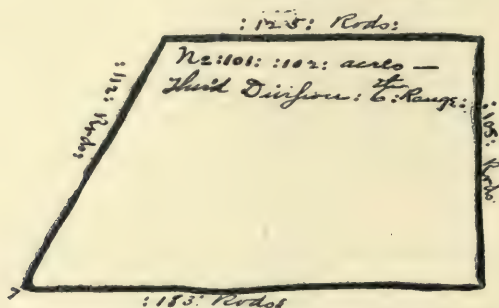 :125: Rods:
No:101: :102: acres —
Third Division: 6th: Range:
:112: Rods:
:105: Rods:
:183: Rods